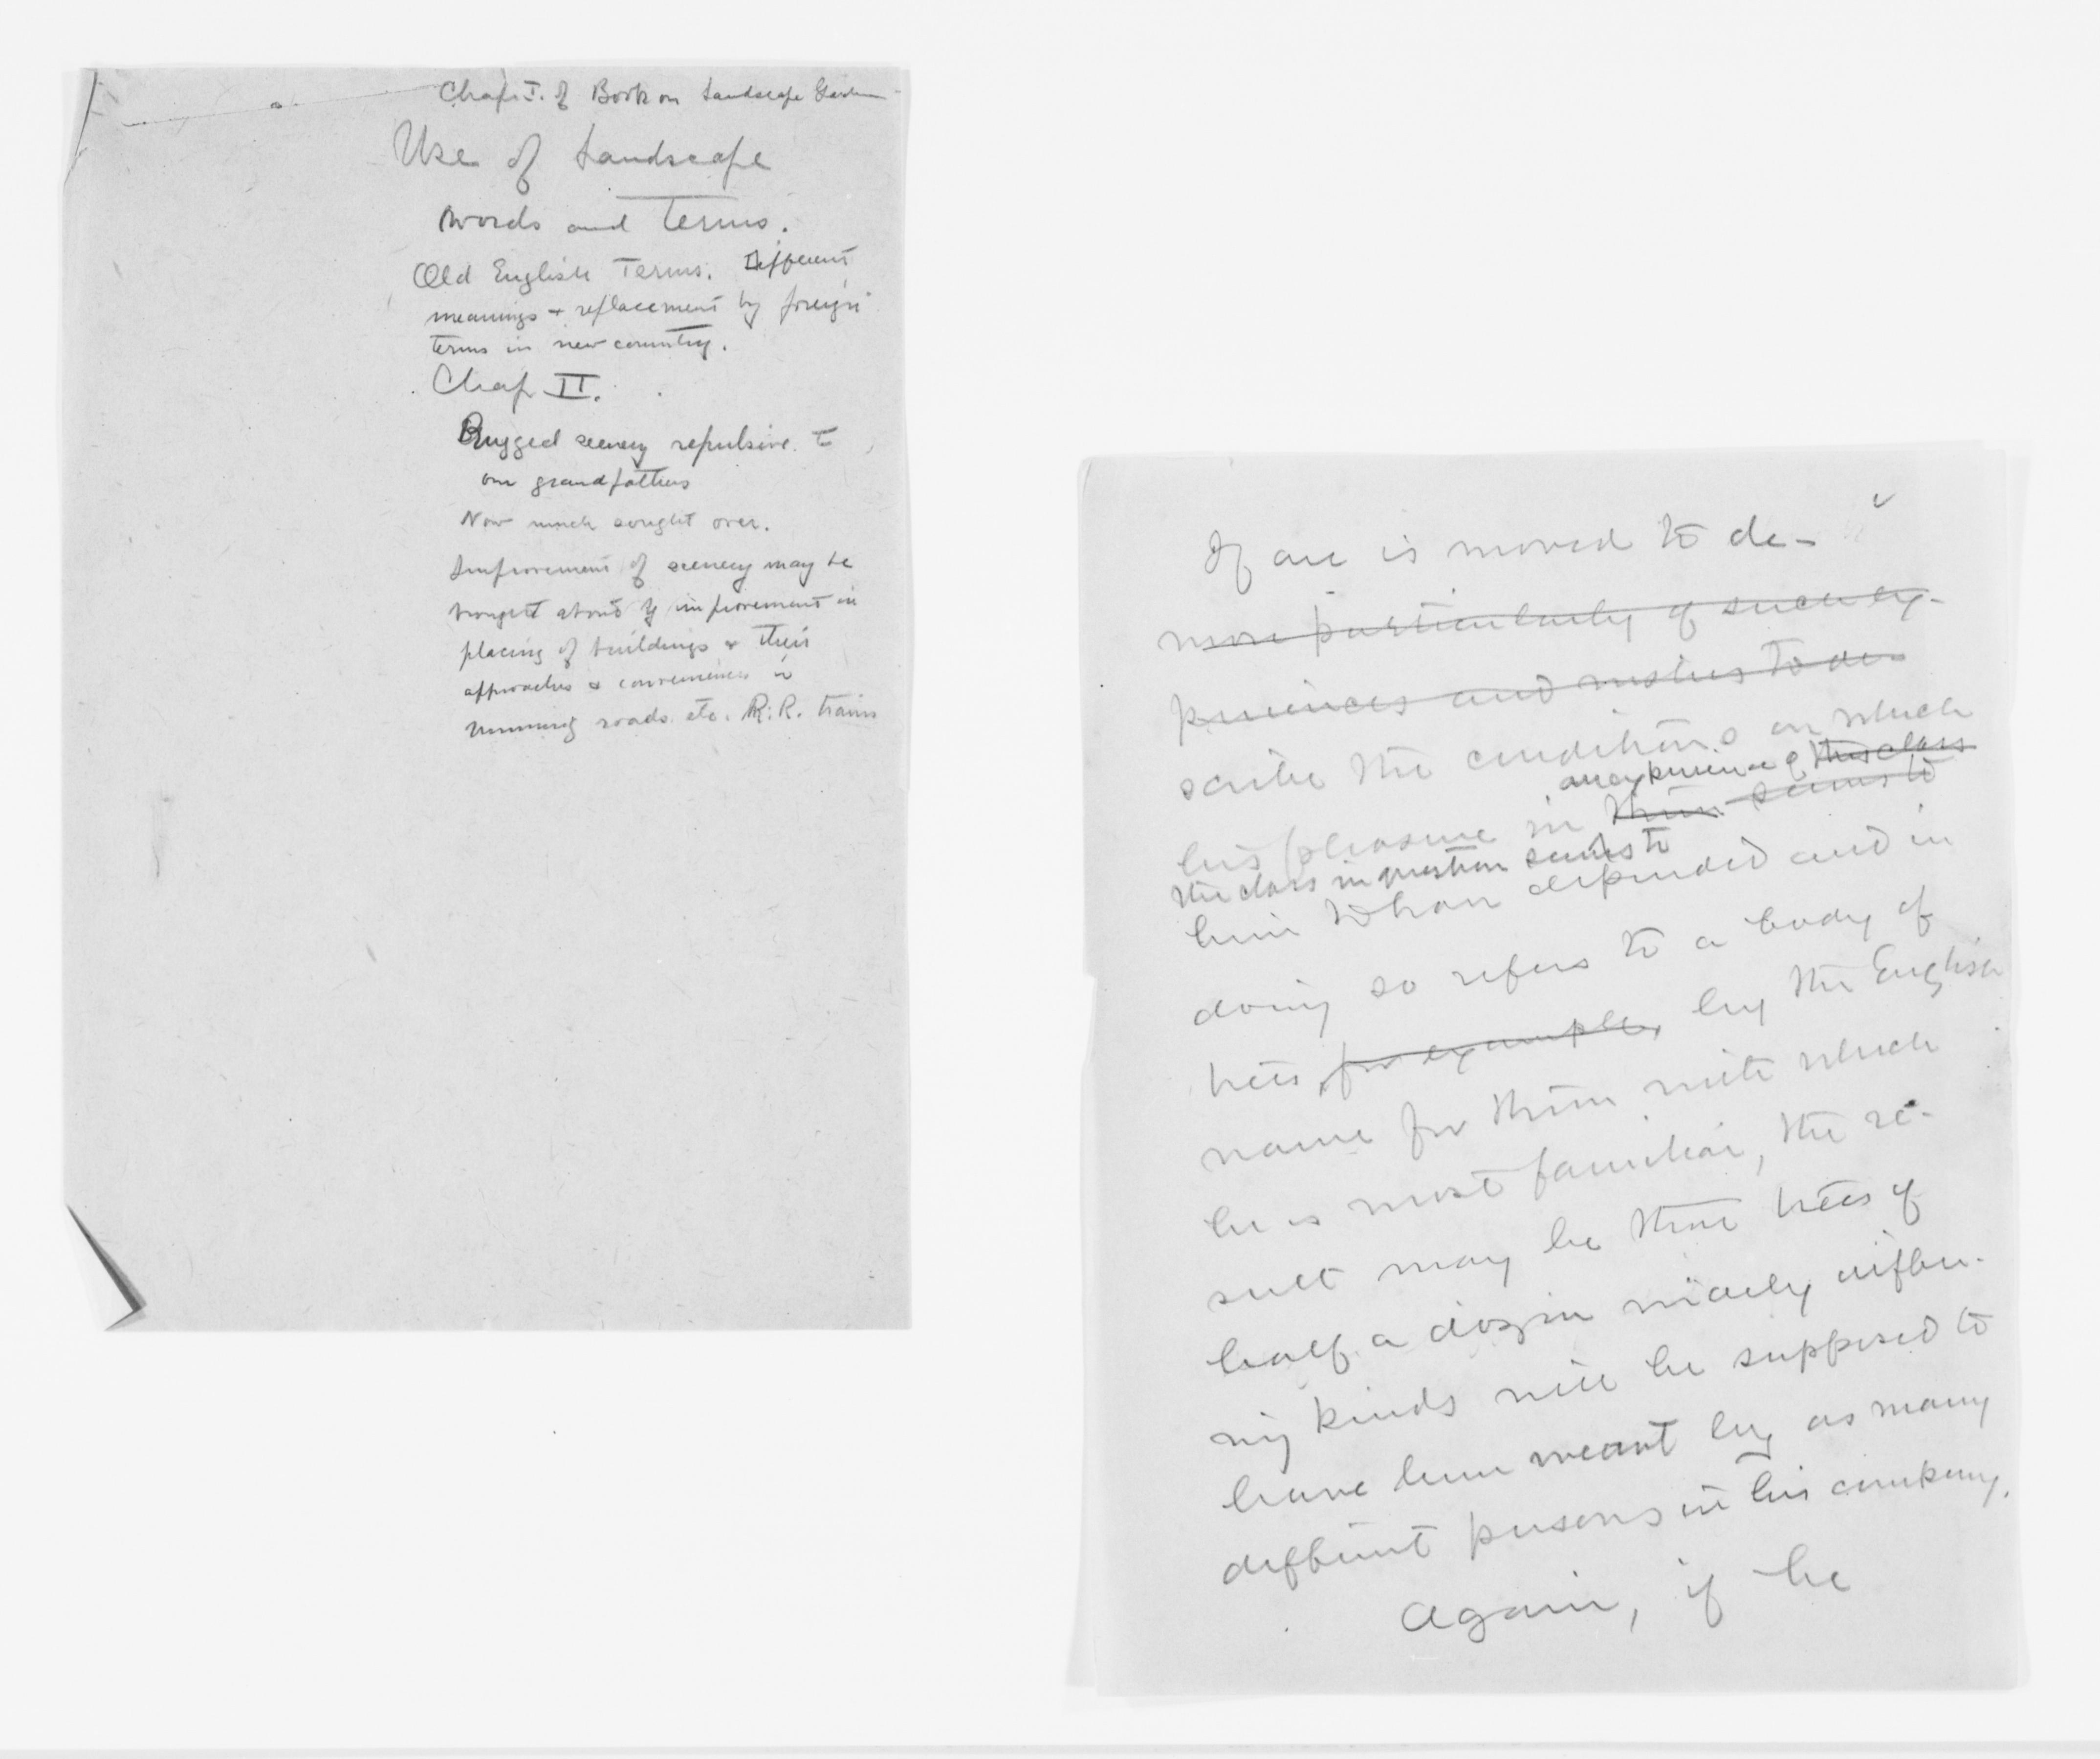 Chap. I. of Book on Landscape Garden
Use of Landscape
words and Terms.
Old English Terms. Different
meanings & replacement by foreign
terms in new country.
Chap II.
Rugged scenery repulsive to
our grandfathers
Now much sought over.
Improvement of scenery may be
brought about by improvement in
placing of buildings & their
approaches & conveniences in
running roads etc. R.R. trains
If one is moved to de-
more particularly of such ex-
periences and wishes to de-
scribe the conditions on which
an experience of this class
his pleasure in them seems to
the class in question seems to
him to have depended and in
doing so refers to a body of
trees, for example, by the English
name for them with which
he is most familiar, the re-
sult may be that trees of
half a dozen widely differ-
ing kinds will be supposed to
have been meant by as many
different persons in his company.
Again, if he